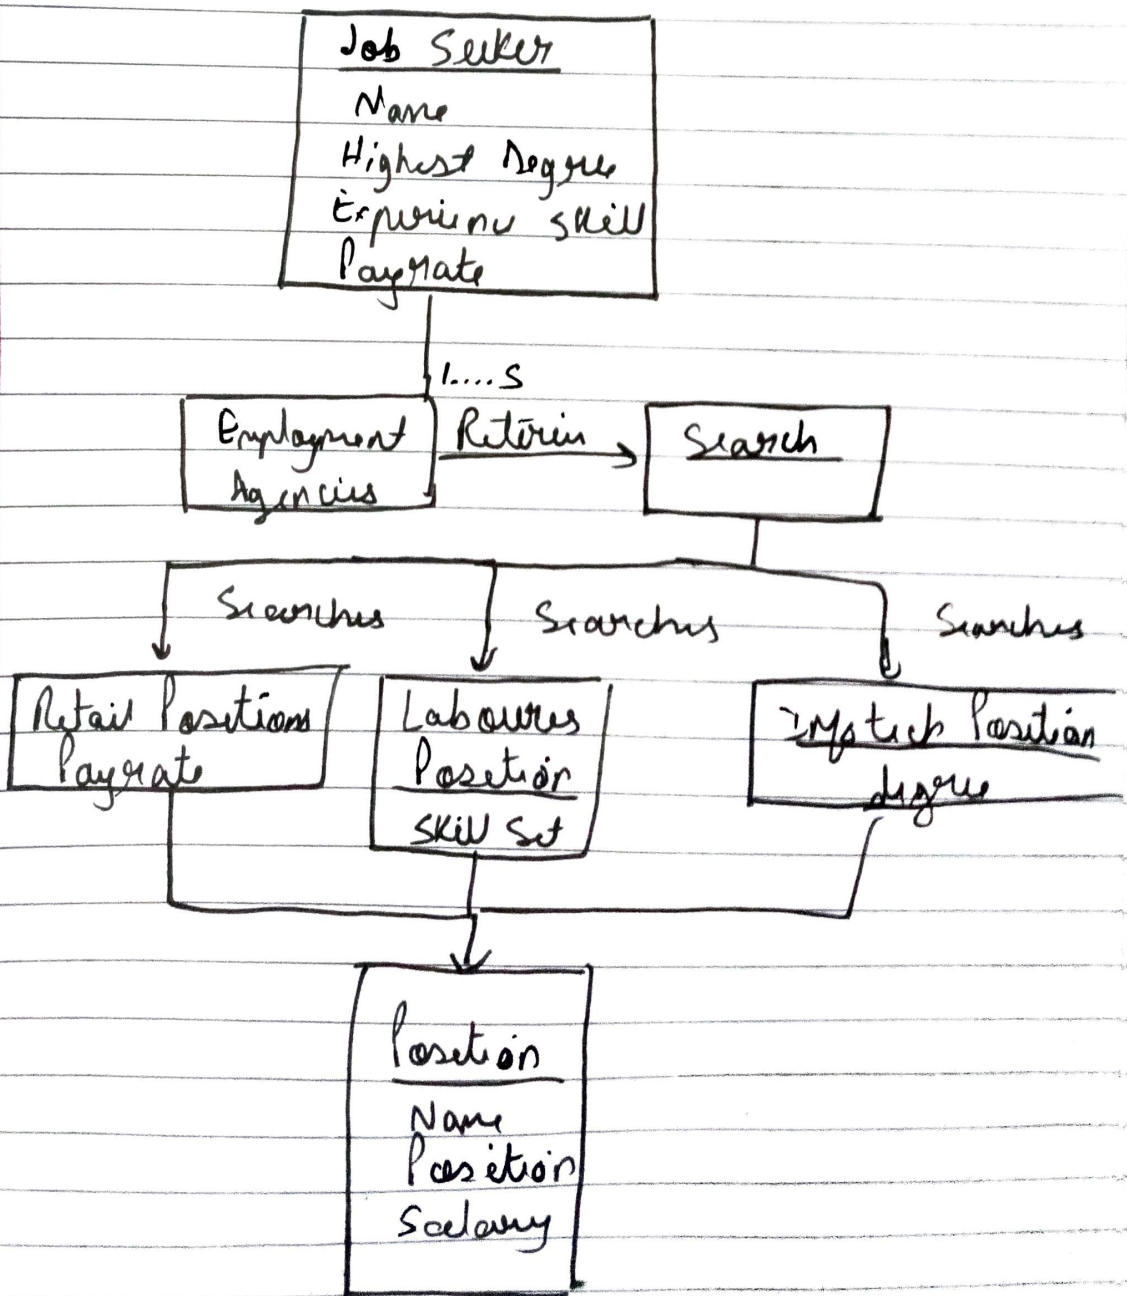 Job Seeker
Name
Highest Degree
Experience Skill
Payrate
1....S
Employment
Agencies
Search
Searches
Searches
Searches
Retail Positions
Payrate
Laboures
Position
Skill Set
Position
degree
Position
Name
Position
Salary